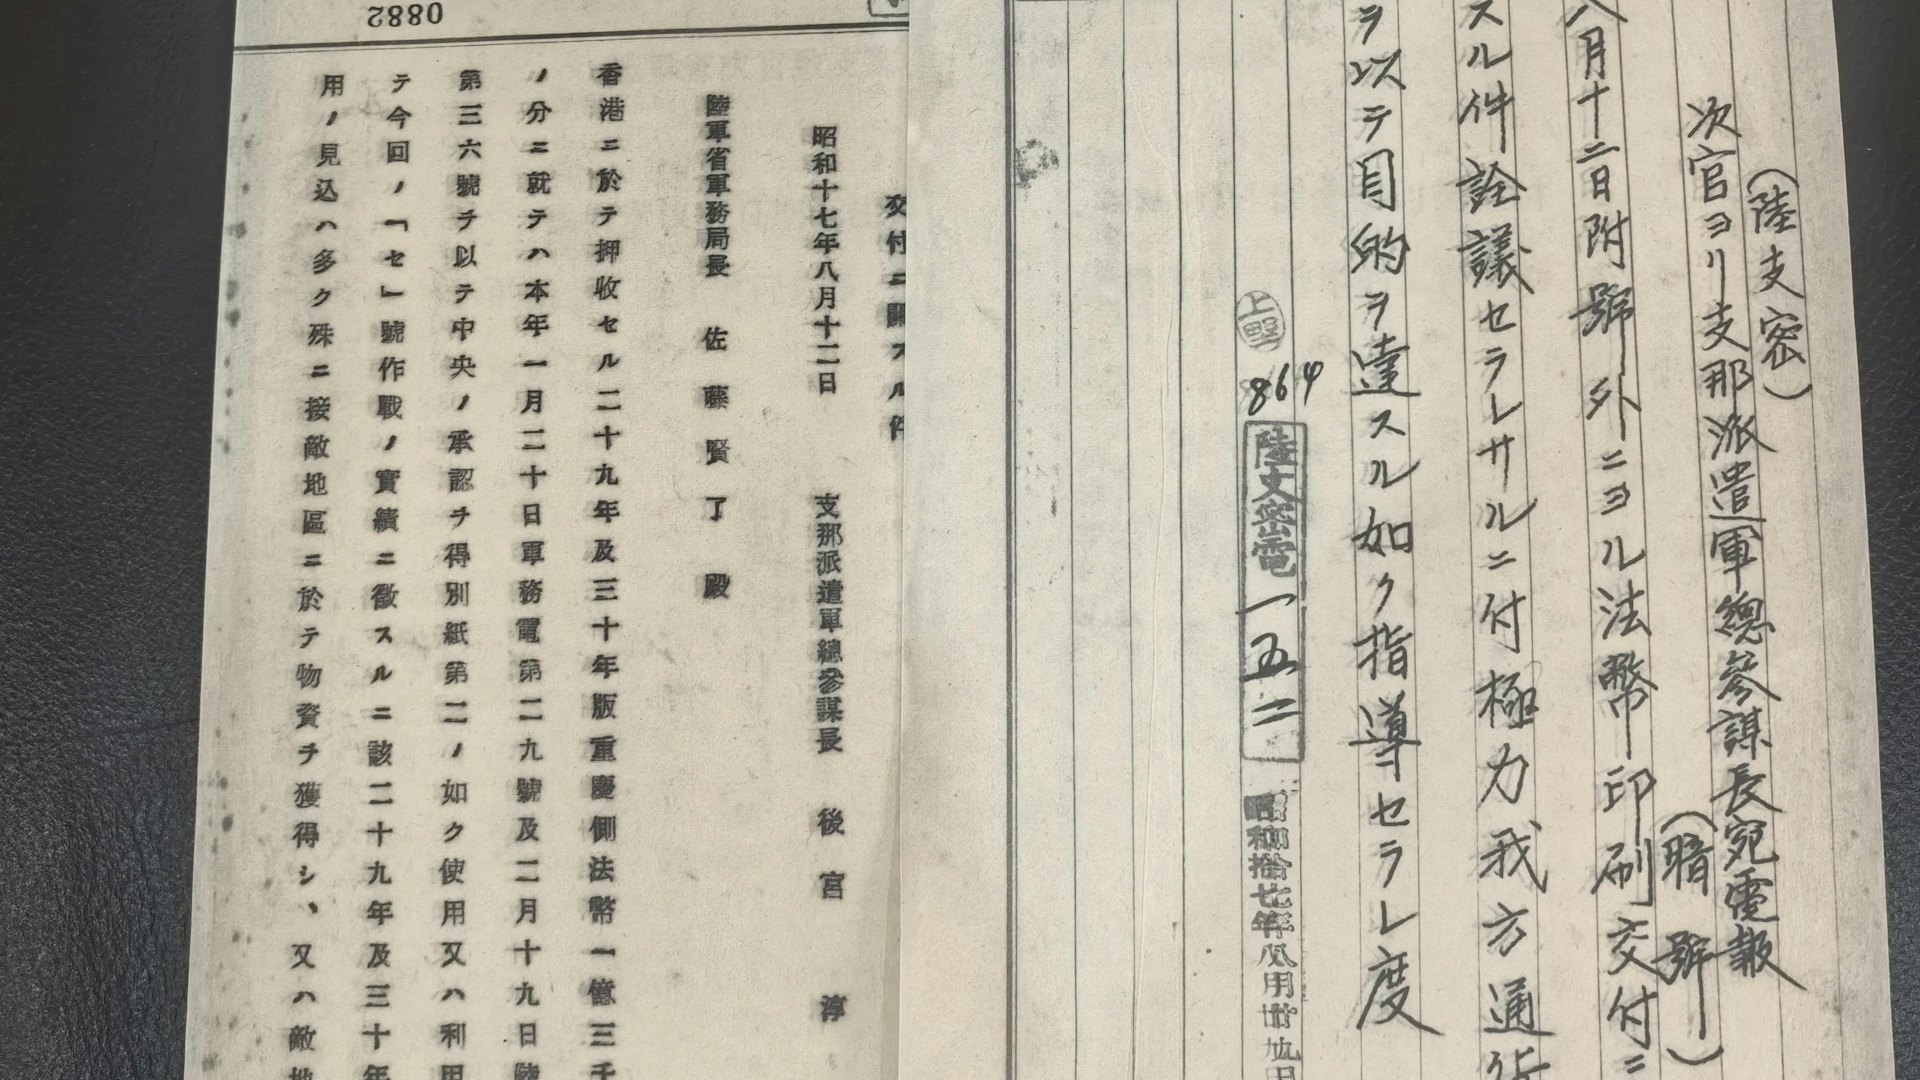 (陸支密)
次官ヨリ支那派遣軍總參謀長宛電報
(暗號)
八月十二日附號外ニヨル法幣印刷交付ニ
スル件詮議セラレサルニ付極力我方通貨
ヲ以テ目的ヲ達スル如ク指導セラレ度
上野
864
陸支密電一五二
昭和拾七年八月廿九日
0882
交付ニ關スル件
昭和十七年八月十二日 支那派遣軍總參謀長 後宮 淳
陸軍省軍務局長 佐藤賢了殿
香港ニ於テ押收セル二十九年及三十年版重慶側法幣一億三千
ノ分ニ就テハ本年一月二十日軍務電第二九號及二月十九日陸
第三六號ヲ以テ中央ノ承認ヲ得別紙第二ノ如ク使用又ハ利用
テ今回ノ「セ」號作戰ノ實績ニ徵スルニ該二十九年及三十年
用ノ見込ハ多ク殊ニ接敵地區ニ於テ物資ヲ獲得シ、又ハ敵地